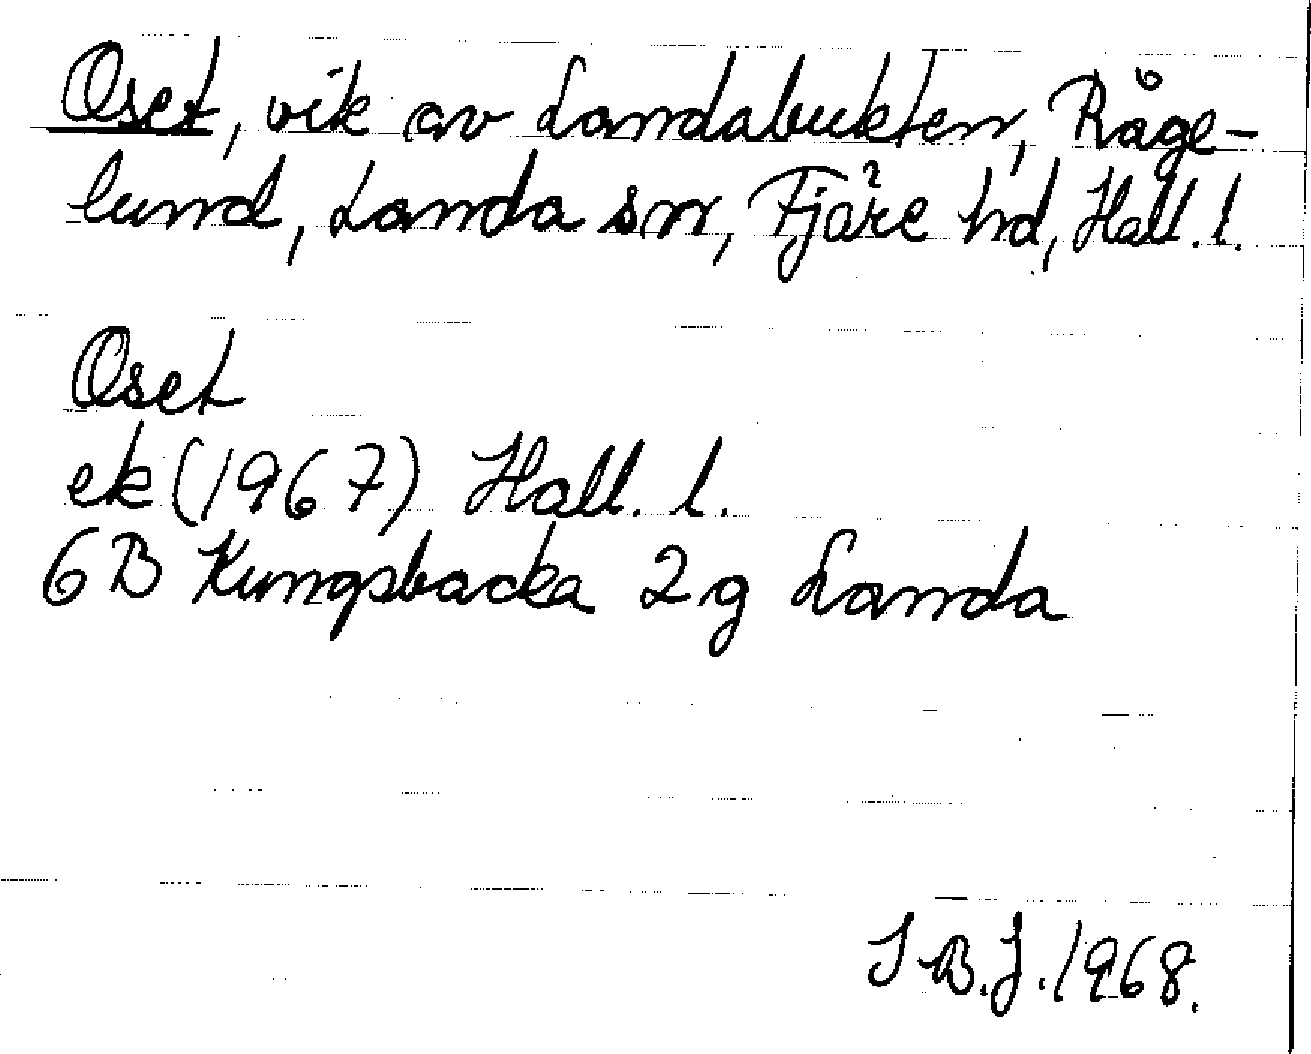 Oset, vik av Landabukten, Råge-
lund, Landa sn, Fjäre hd, Hall. l.
Oset
ek (1967) Hall. l.
6B Kungsbacka 2g Landa
I B.J. 1968.